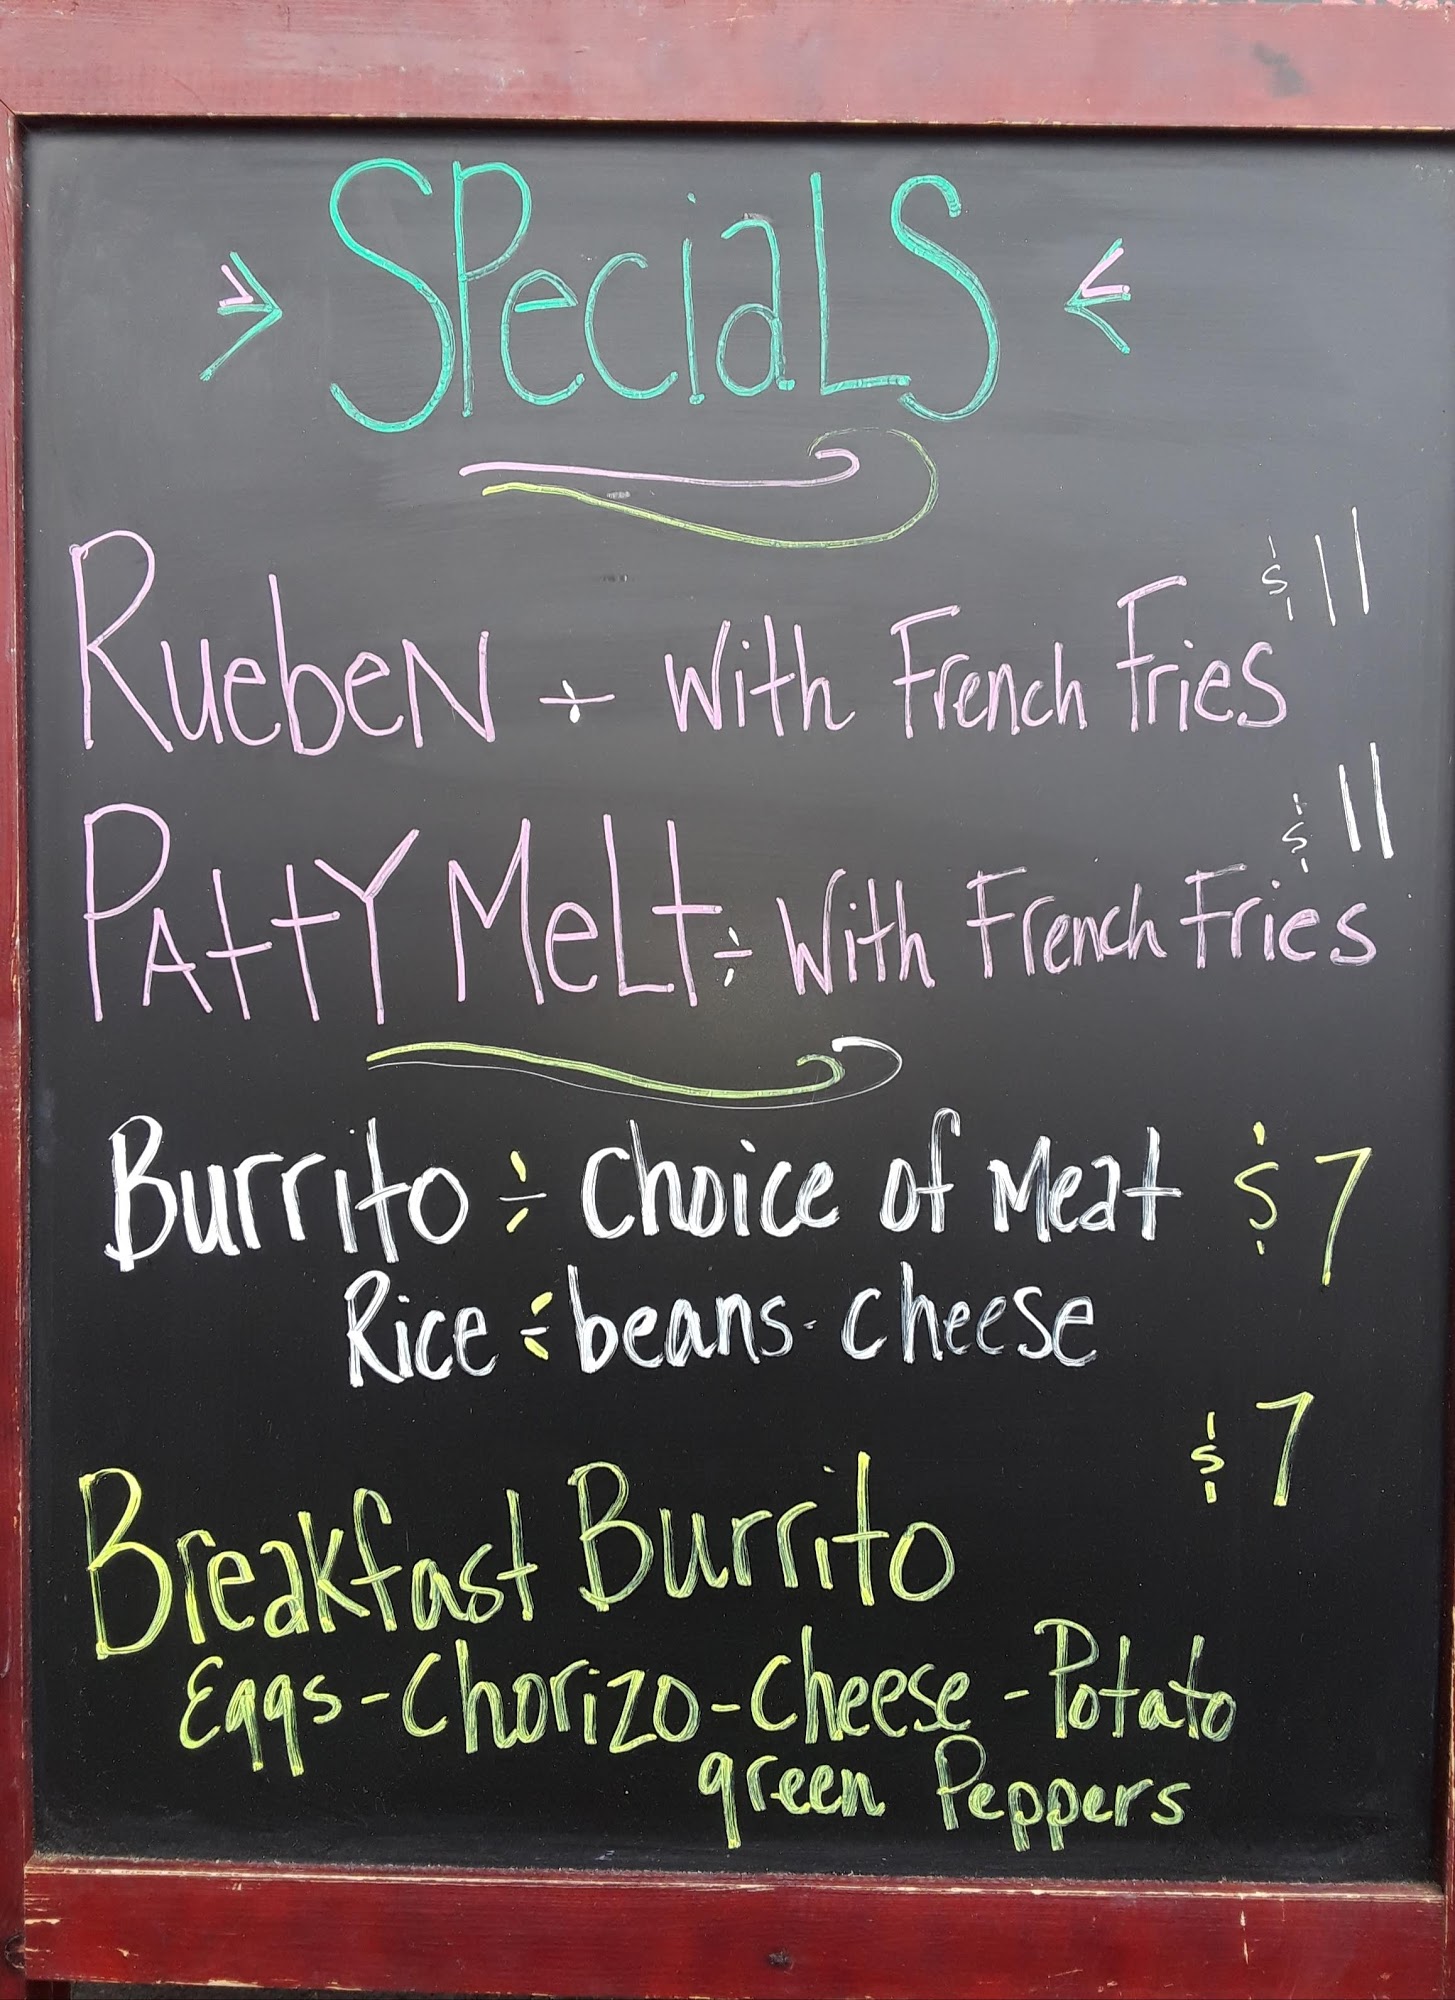 > SPeciaLS <
$11
RuebeN ÷ With French Fries
$11
PAttY MeLt ÷ With French Fries
Burrito ÷ Choice of Meat $7
Rice ÷ beans - cheese
$7
Breakfast Burrito
Eggs - Chorizo - Cheese - Potato
green Peppers